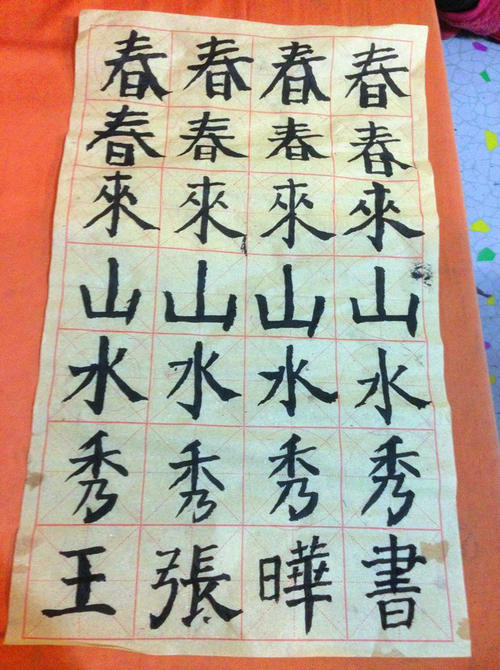 春春春春
春春春春
來來來來
山山山山
水水水水
秀秀秀秀
王張曄書